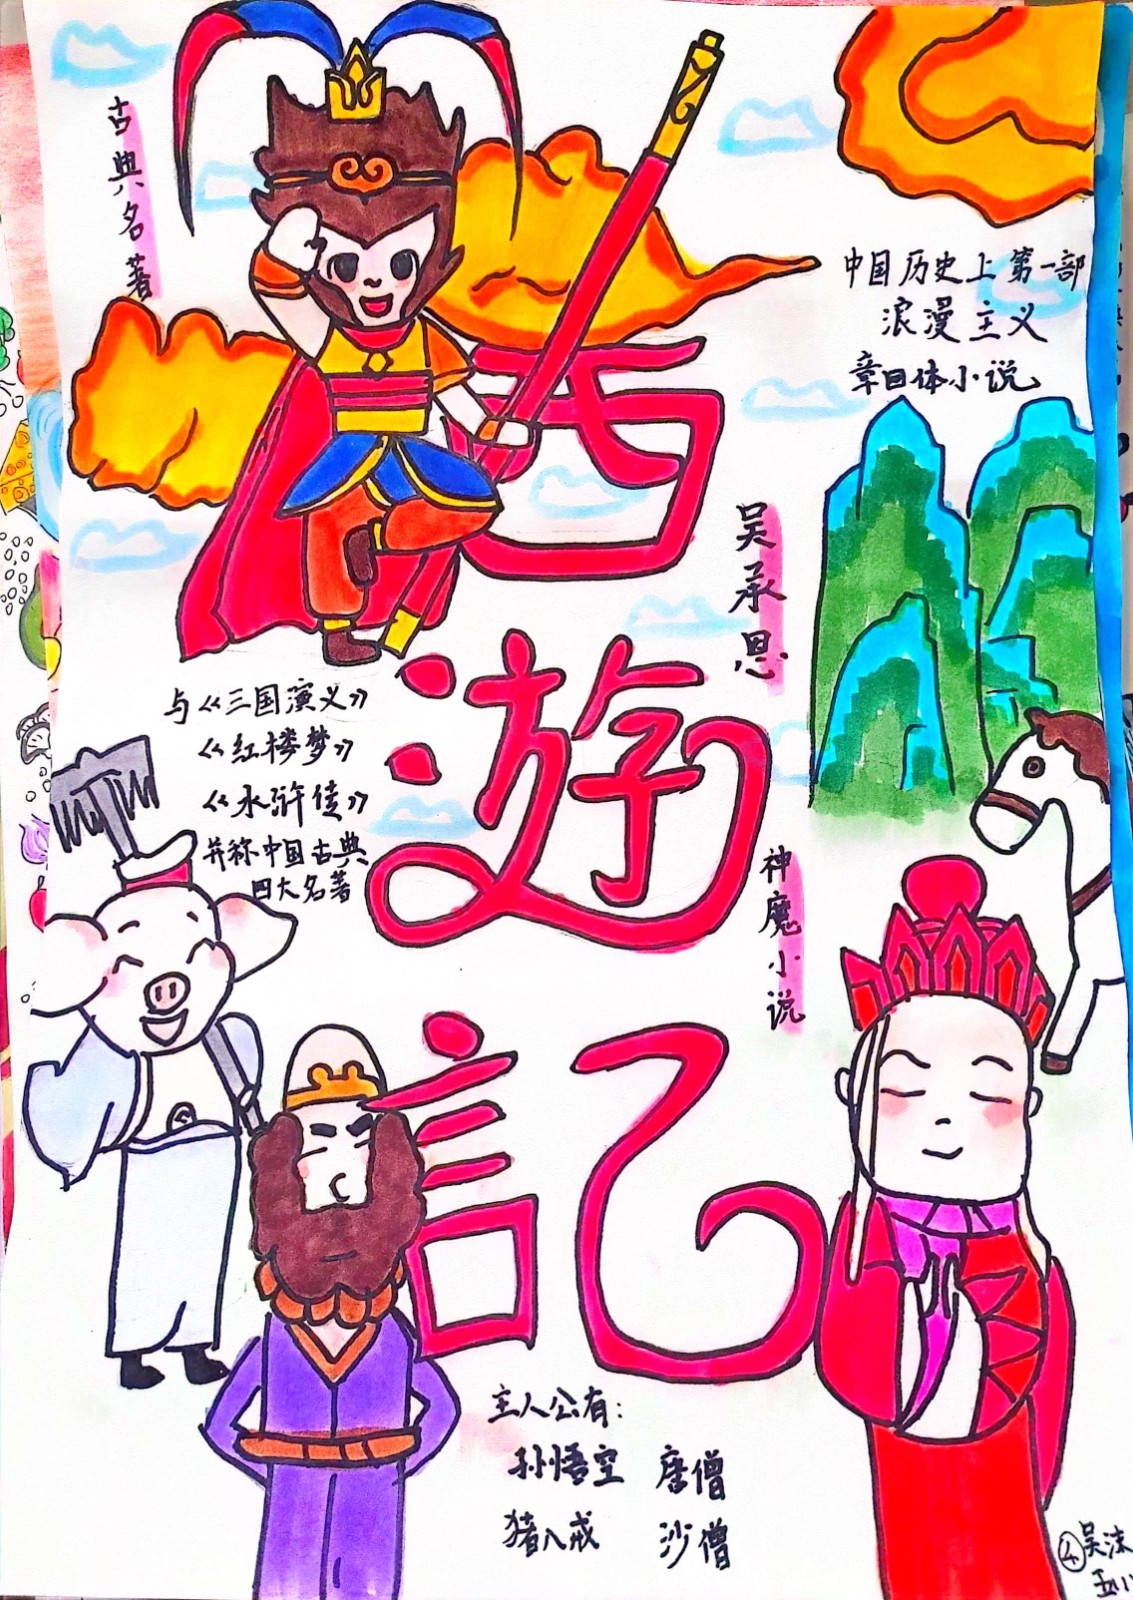 古典名著
中国历史上第一部
浪漫主义
章目体小说
西
遊
記
吴承恩
与《三国演义》
《红楼梦》
《水浒传》
并称中国古典
四大名著
神魔小说
主人公有：
孙悟空 唐僧
猪八戒 沙僧
④吴沫